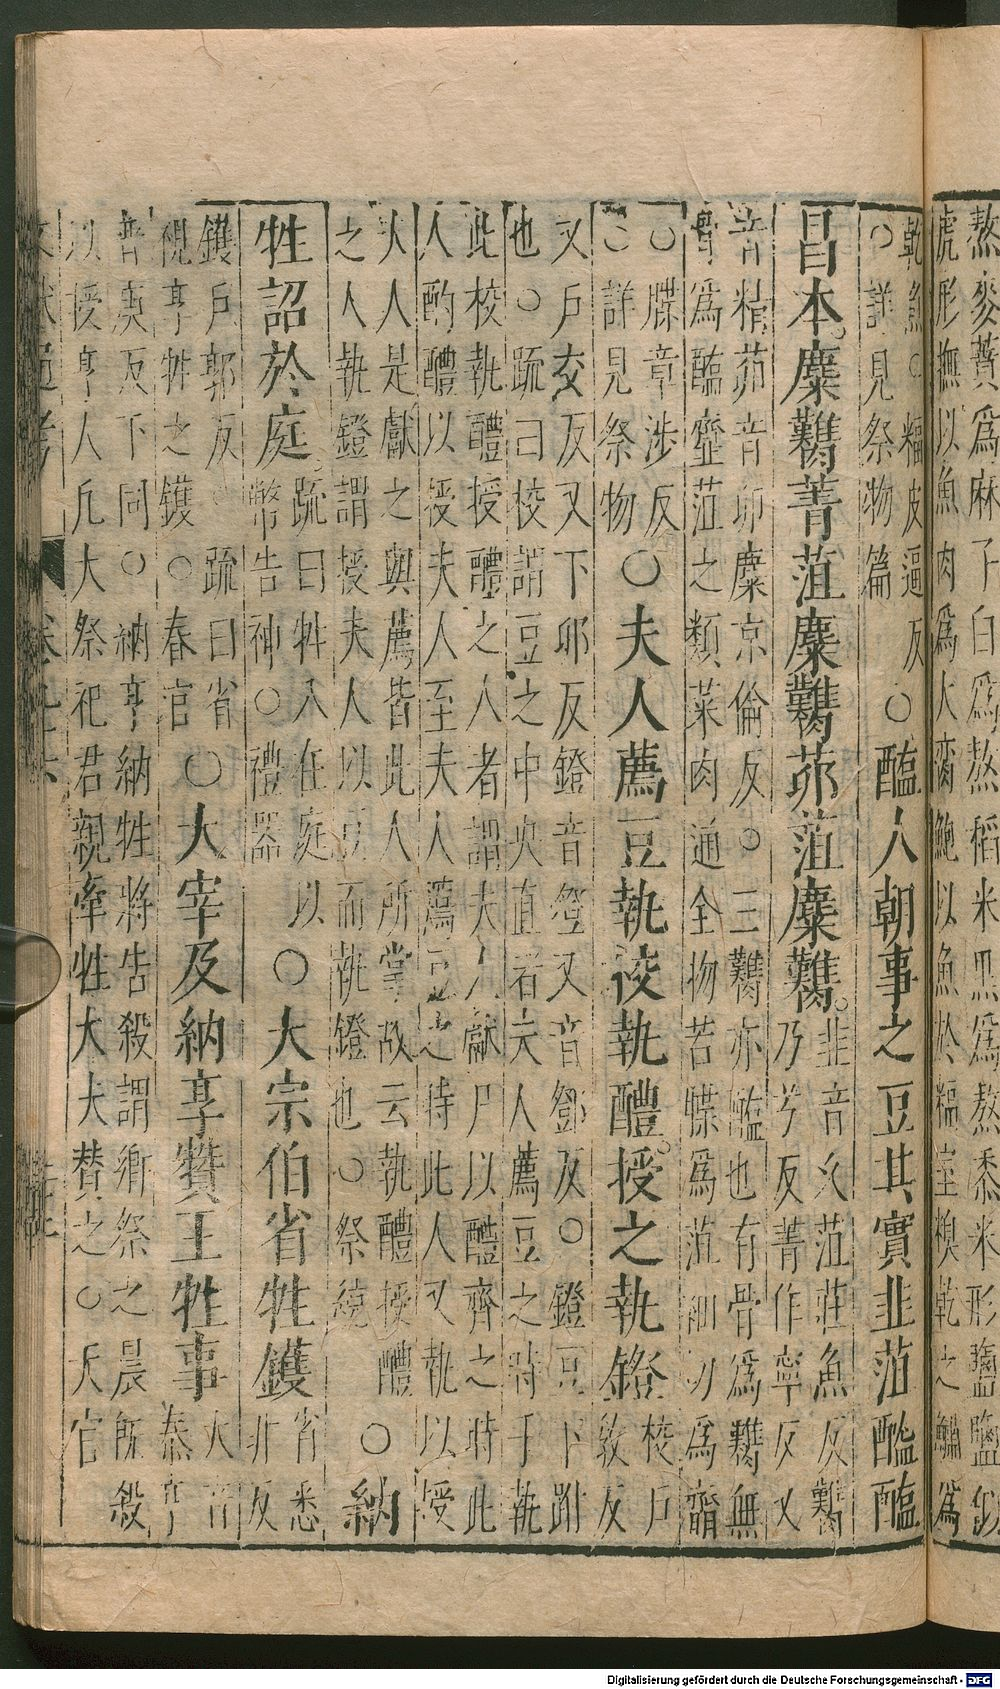 熬麥蕡爲麻子白爲熬稻米黑爲熬黍米形鹽鹽似
虎形膴以魚肉爲大臠鮑以魚於糗室糗乾之鱐爲
乾魚○糗皮逼反
○詳見祭物篇
○醢人朝事之豆其實韭菹醓醢
昌本麋臡菁菹鹿臡茆菹麋臡
韭音久菹莊魚反臡
乃兮反菁作寧反又
音精茆音卯麋京倫反○三臡亦醢也有骨爲臡無
骨爲醢齏菹之類菜肉通全物若䐑爲菹細切爲齏
○䐑章涉反
○詳見祭物
○夫人薦豆執校執醴授之執鐙
校戶
敎反
又戶交反又下卯反鐙音登又音鄧反○鐙豆下跗
也○疏曰校謂豆之中央直者夫人薦豆之時手執
此校執醴授醴之人者謂夫人獻尸以醴齊之時此
人酌醴以授夫人至夫人薦豆之時此人又執以授
夫人是獻之與薦皆此人所掌故云執醴授醴
之人執鐙謂授夫人以豆而執鐙也○祭統
○納
牲詔於庭
疏曰牲入在庭以
幣告神○禮器
○大宗伯省牲鑊
省悉
井反
鑊戶郭反○疏曰省
視亨牲之鑊○春官
○大宰及納亨贊王牲事
大音
泰亨
普庚反下同○納亨納牲將告殺謂鄉祭之晨旣殺
以授亨人凡大祭祀君親牽牲大夫贊之○天官
文獻通考
Digitalisierung gefördert durch die Deutsche Forschungsgemeinschaft - DFG